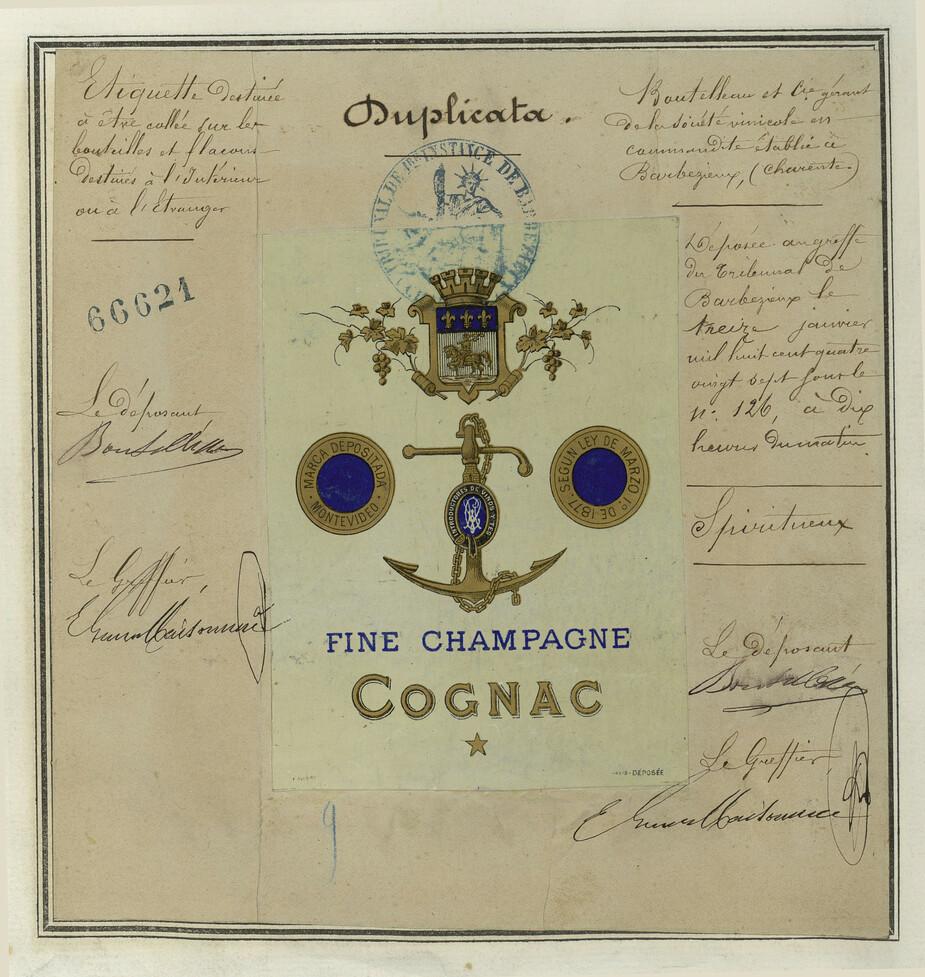 Duplicata.
Etiquette destinée
à être collée sur les
bouteilles et flacons
destinés à l'Intérieur
ou à l'Etranger
66621
Le déposant
Boutelleau
Le Greffier
Boutelleau et Cie gérant
de la société vinicole en
commandite établie à
Barbezieux, (Charente.)
Déposée au greffe
du Tribunal de
Barbezieux le
treize janvier
mil huit cent quatre
vingt sept sous le
n° 126, à dix
heures du matin
Spiritueux
Le déposant
Boutelleau
Le Greffier
TRIBUNAL DE 1ERE INSTANCE DE BARBEZIEUX
MARCA DEPOSITADA
MONTEVIDEO
INTRODUCTORES DE VINOS Y TES
SEGUN LEY DE MARZO 1º DE 1877
FINE CHAMPAGNE
COGNAC
DÉPOSÉE
9